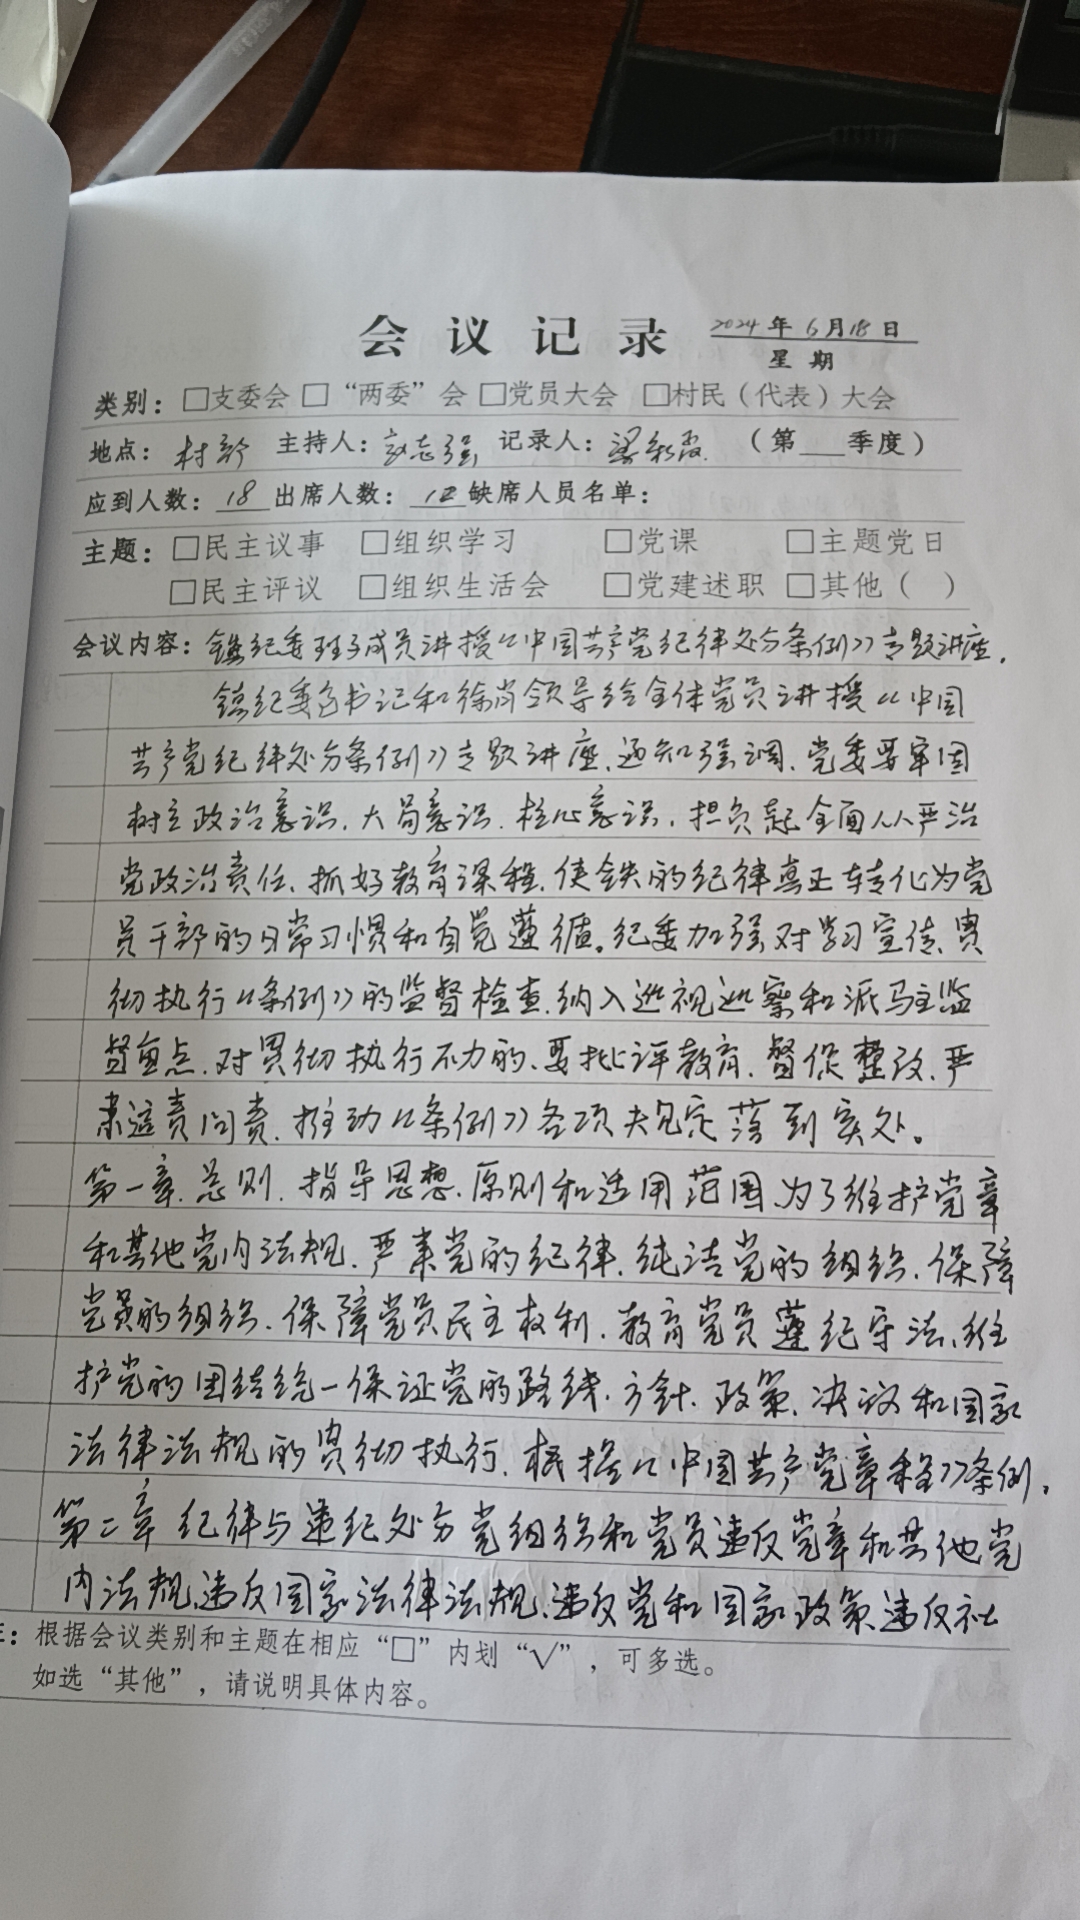 会议记录 2024年6月18日
星期
类别：□支委会 □“两委”会 □党员大会 □村民（代表）大会
地点：村部 主持人：志强 记录人：梁彩霞 （第 季度）
应到人数：18 出席人数： 缺席人员名单：
主题：□民主议事 □组织学习 □党课 □主题党日
□民主评议 □组织生活会 □党建述职 □其他（ ）
会议内容：镇纪委班子成员讲授《中国共产党纪律处分条例》专题讲座.
镇纪委书记和徐岗领导给全体党员讲授《中国
共产党纪律处分条例》专题讲座、通知强调、党委要牢固
树立政治意识、大局意识、核心意识，担负起全面从严治
党政治责任、抓好教育课程、使铁的纪律真正转化为党
员干部的日常习惯和自觉遵循。纪委加强对学习宣传、贯
彻执行《条例》的监督检查、纳入巡视巡察和派马主监
督重点、对贯彻执行不力的、要批评教育、督促整改、严
肃追责问责、推动《条例》各项规定落到实处。
第一章、总则、指导思想、原则和适用范围、为了维护党章
和其他党内法规、严肃党的纪律、纯洁党的组织、保障
党员的组织、保障党员民主权利、教育党员遵纪守法、维
护党的团结统一保证党的路线、方针、政策、决议和国家
法律法规的贯彻执行、根据《中国共产党章程》条例.
第二章 纪律与违纪处分党组织和党员违反党章和其他党
内法规、违反国家法律法规、违反党和国家政策违反社
注：根据会议类别和主题在相应“□”内划“√”，可多选。
如选“其他”，请说明具体内容。